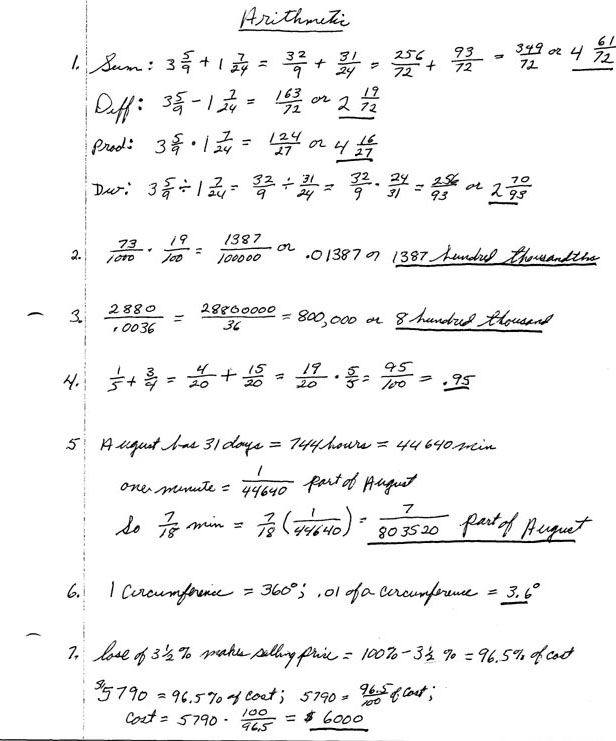 Arithmetic
1. Sum: 3 5/9 + 1 7/24 = 32/9 + 31/24 = 256/72 + 93/72 = 349/72 or 4 61/72
Diff: 3 5/9 - 1 7/24 = 163/72 or 2 19/72
Prod: 3 5/9 · 1 7/24 = 124/27 or 4 16/27
Div: 3 5/9 ÷ 1 7/24 = 32/9 ÷ 31/24 = 32/9 · 24/31 = 256/93 or 2 70/93
2. 73/1000 · 19/100 = 1387/100000 or .01387 or 1387 hundred thousandths
3. 2880/.0036 = 28800000/36 = 800,000 or 8 hundred thousand
4. 1/5 + 3/4 = 4/20 + 15/20 = 19/20 · 5/5 = 95/100 = .95
5 August has 31 days = 744 hours = 44640 min
one minute = 1/44640 part of August
So 7/18 min = 7/18 (1/44640) = 7/803520 part of August
6. 1 Circumference = 360°; .01 of a circumference = 3.6°
7. lose of 3½% makes selling price = 100% - 3½% = 96.5% of cost
$5790 = 96.5% of cost; 5790 = 96.5/100 of cost;
Cost = 5790 · 100/96.5 = $6000